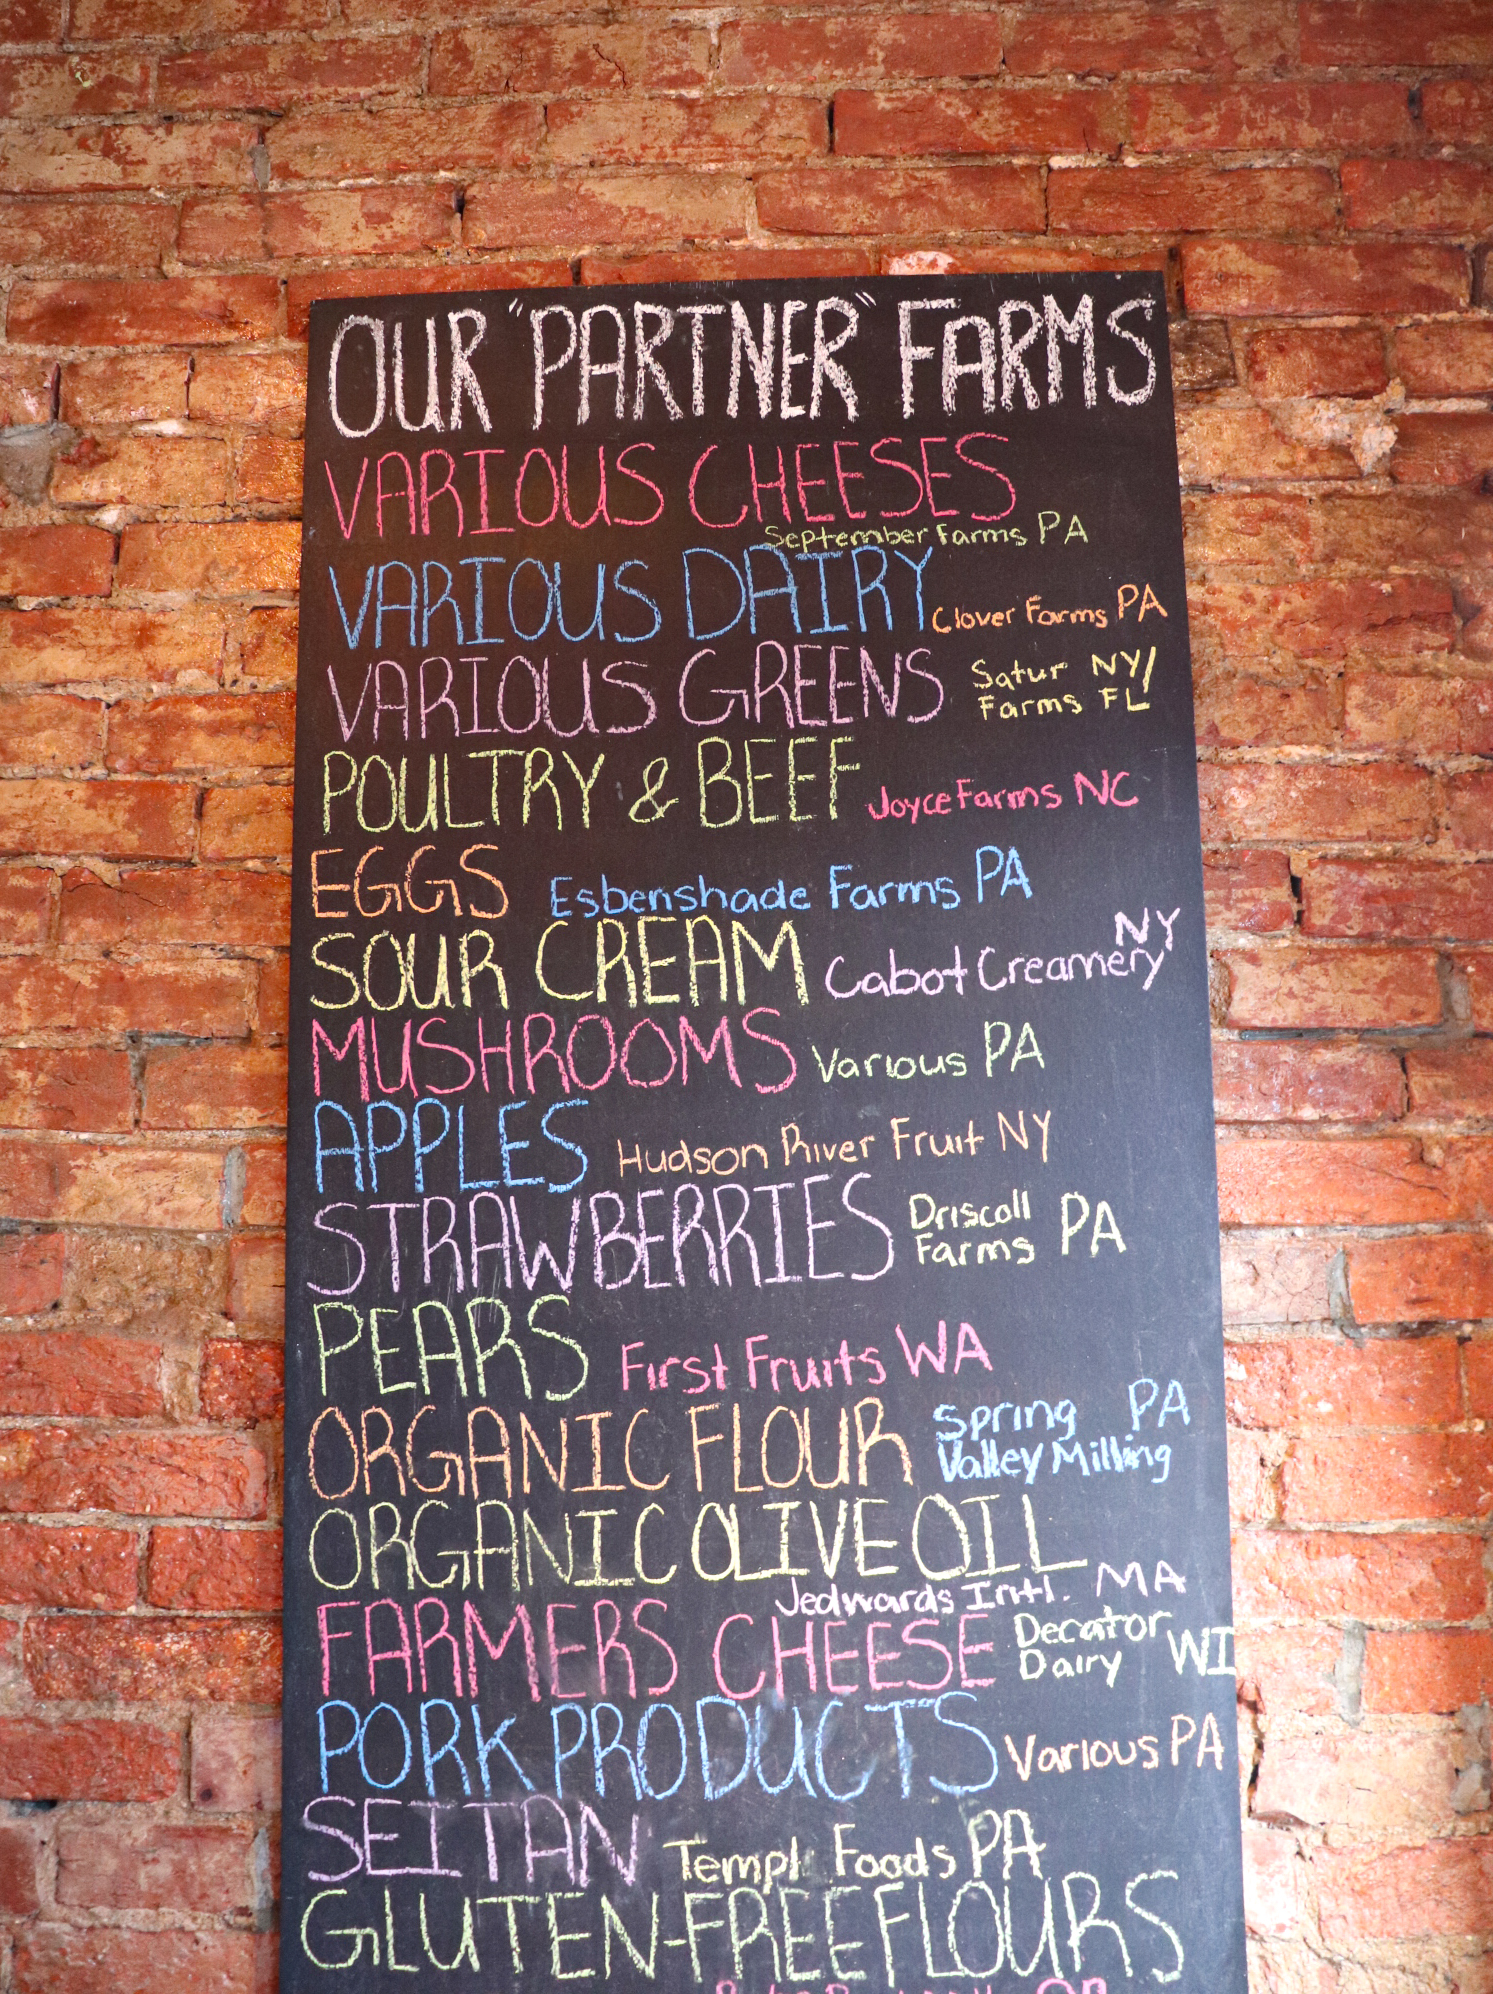 OUR "PARTNER" FARMS
VARIOUS CHEESES
September Farms PA
VARIOUS DAIRY Clover Farms PA
VARIOUS GREENS Satur NY/
Farms FL
POULTRY & BEEF Joyce Farms NC
EGGS Esbenshade Farms PA
SOUR CREAM Cabot Creamery NY
MUSHROOMS Various PA
APPLES Hudson River Fruit NY
STRAWBERRIES Driscoll
Farms PA
PEARS First Fruits WA
ORGANIC FLOUR Spring PA
Valley Milling
ORGANIC OLIVE OIL
Jedwards Intl. MA
FARMERS CHEESE Decator
Dairy WI
PORK PRODUCTS Various PA
SEITAN Foods PA
GLUTEN-FREE FLOURS